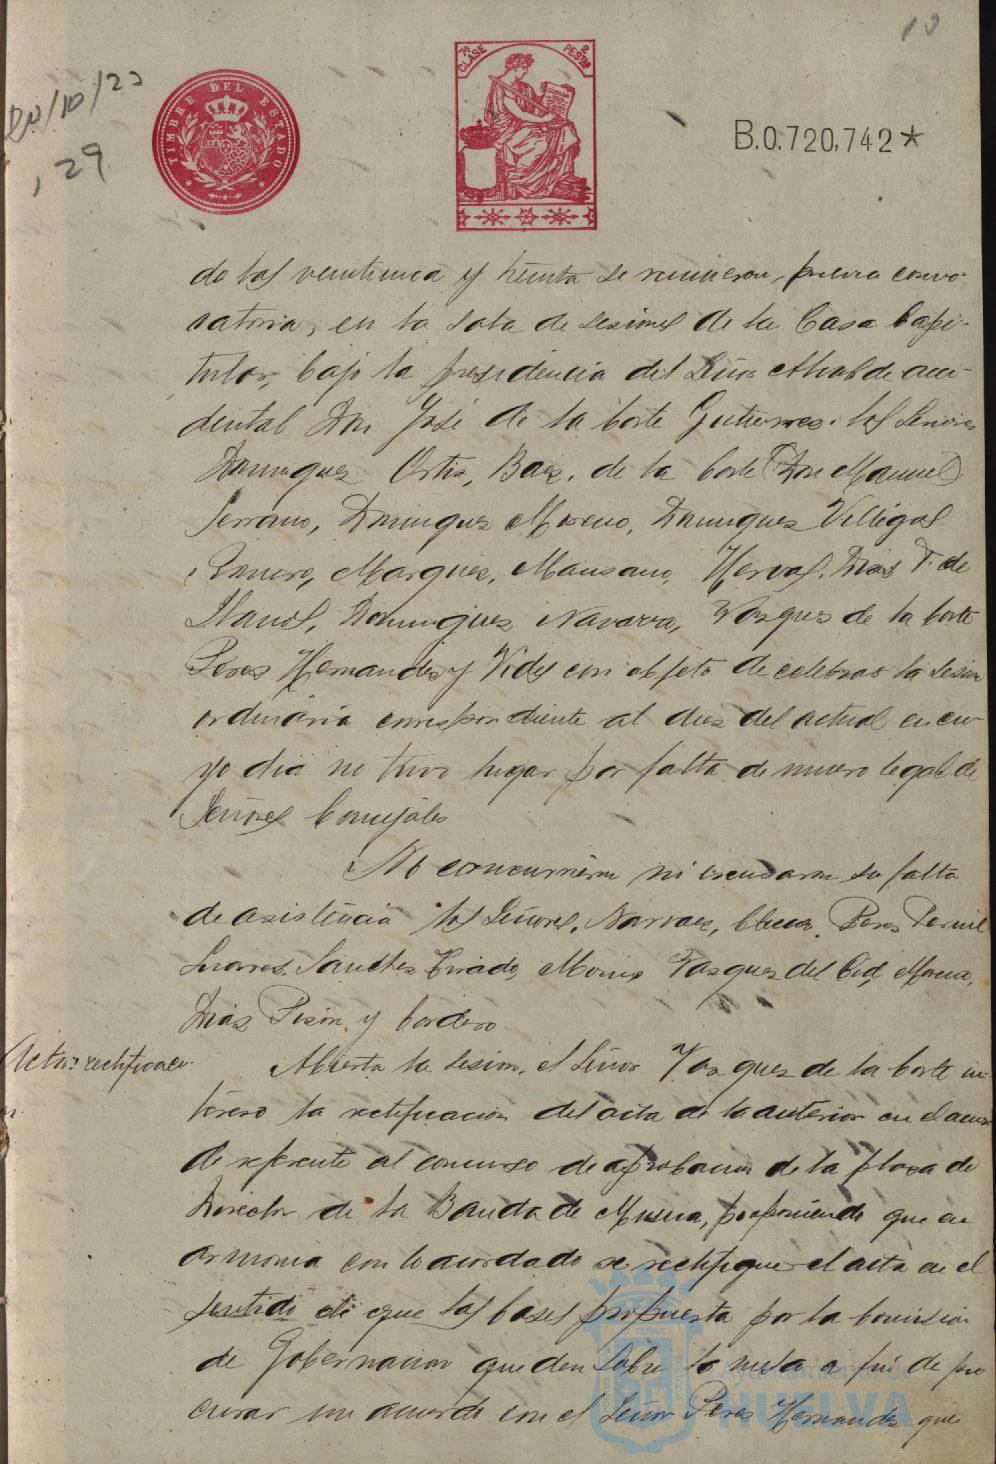 10
20/10/23
, 29
TIMBRE DEL ESTADO
7ª CLASE
2 PESTAS
B.0.720,742*
de las veintiuna y treinta se reunieron, previa convo-
catoria, en la sala de sesiones de la Casa Capi-
tular, bajo la presidencia del Señor Alcalde acci-
dental Don José de la Corte Gutierrez, los Señores
Dominguez Ortiz, Baez, de la Corte (Don Manuel)
Serrano, Dominguez Moreno, Dominguez Villegas
Romero, Marquez, Manzano, Hervas, Diaz F. de
Llanos, Dominguez Navarro, Vazquez de la Corte
Perez Hernandez y Vides con objeto de celebrar la sesion
ordinaria correspondiente al diez del actual en cu-
yo dia no tuvo lugar por falta de numero legal de
Señores Concejales
No concurrieron ni escusaron su falta
de asistencia los Señores, Narvaez, Perez Pernil
Suarez, Sanchez Tirado, Vazquez del Cid,
Diaz Pison, y Cordero
Actas rectificacn.
Abierta la sesion, el Señor Vazquez de la Corte in-
tereso la rectificacion del acta de la anterior en el acuer
do referente al concurso de aprobacion de la plaza de
Director de la Banda de Musica, proponiendo que en
armonia con lo acordado se rectifique el acta en el
sentido de que las bases propuesta por la Comision
de Gobernacion queden sobre la mesa a fin de pro
curar un acuerdo con el Señor Perez Hernandez que
Ayuntamiento de
HUELVA